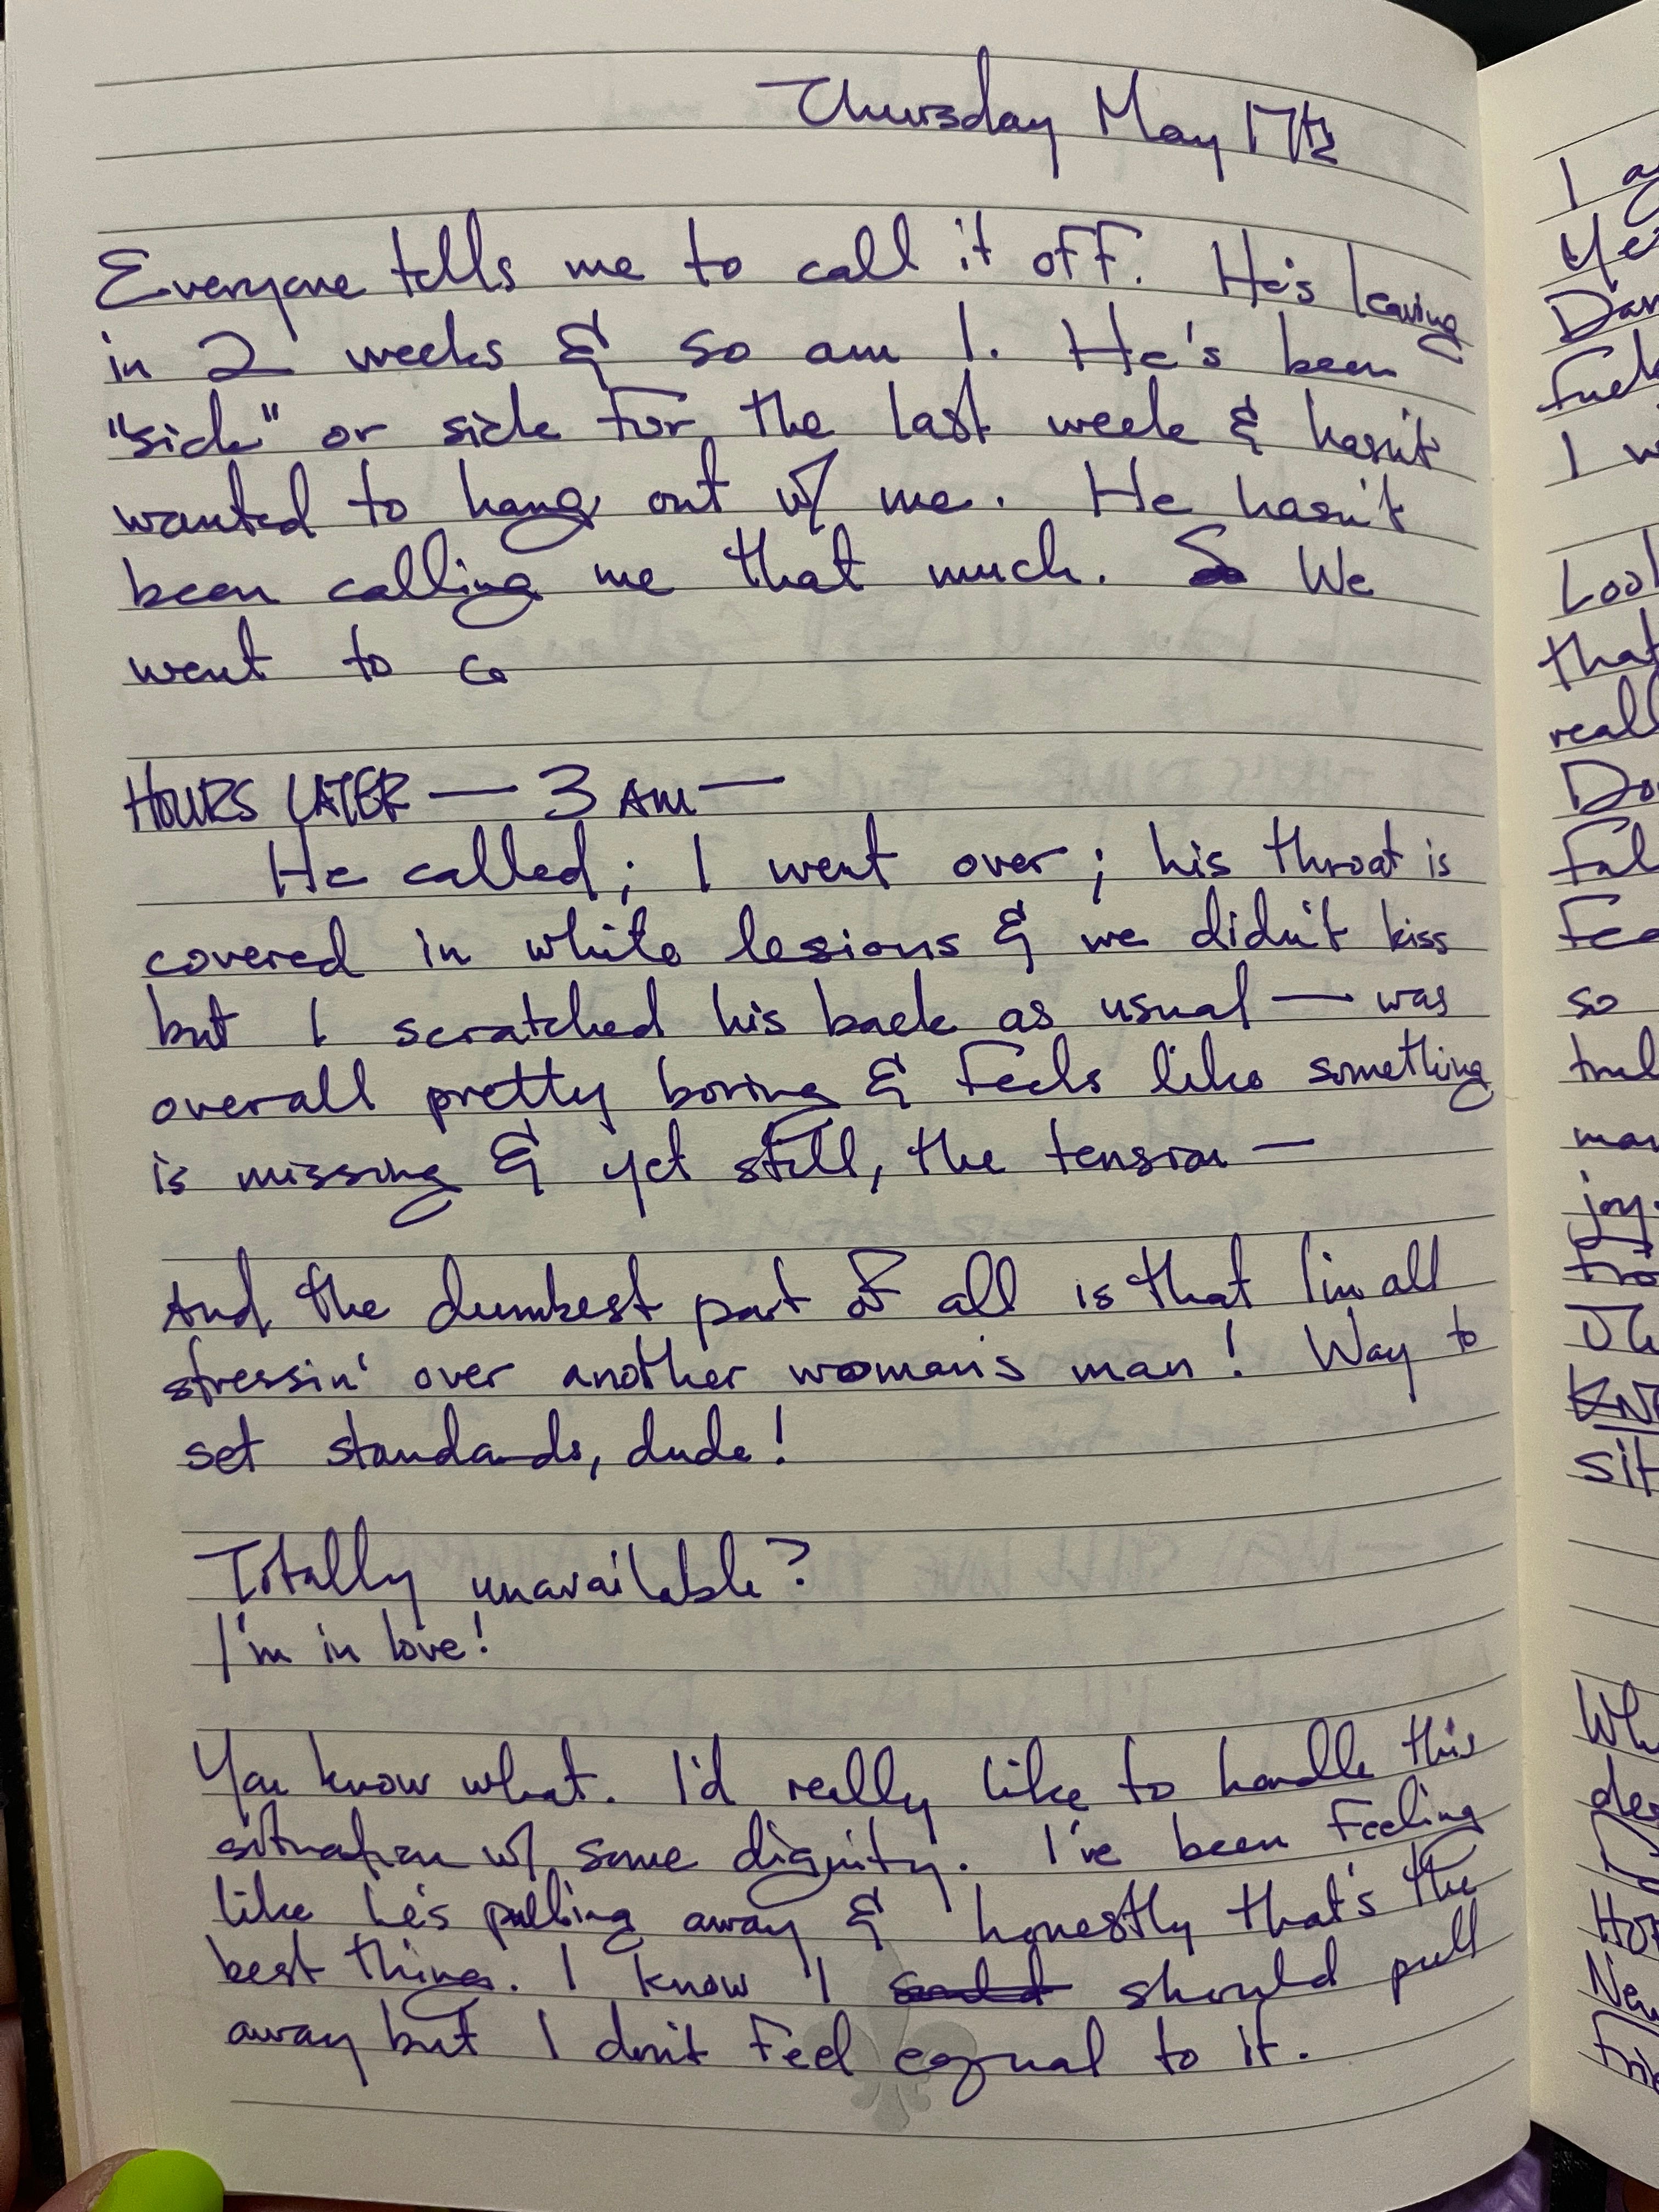 Thursday May 17th
Everyone tells me to call it off. He's leaving
in 2 weeks & so am I. He's been
"sick" or sick for the last week & hasn't
wanted to hang out w/ me. He hasn't
been calling me that much. So We
went to co
HOURS LATER — 3 AM —
He called; I went over; his throat is
covered in white lesions & we didn't kiss
but I scratched his back as usual — was
overall pretty boring & feels like something
is missing & yet still, the tension —
And the dumbest part of all is that I'm all
stressin' over another woman's man! Way to
set standards, dude!
Totally unavailable?
I'm in love!
You know what. I'd really like to handle this
situation w/ some dignity. I've been feeling
like he's pulling away & honestly that's the
best thing. I know I should pull
away but I don't feel equal to it.
I
I w
that
so
joy.
sit